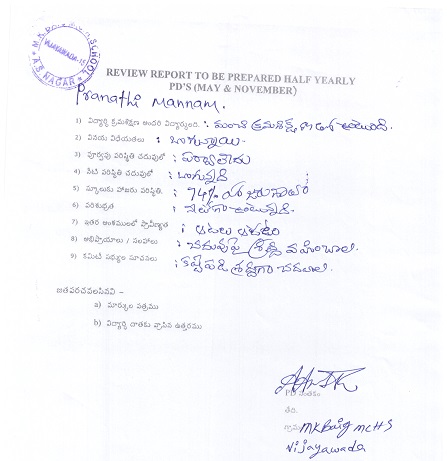 M.K. A.S. NAGAR SCHOOL VIJAYAWADA-15
REVIEW REPORT TO BE PREPARED HALF YEARLY
PD'S (MAY & NOVEMBER)
Pranathi Mannam.
1) విద్యార్థి క్రమశిక్షణ అందరి విద్యార్థులది. : మంచి క్రమశిక్షణ గా ఉంటుంది.
2) వినయ విధేయతలు : బాగున్నాయి
3) పూర్వపు పరిస్థితి చదువులో : పర్వాలేదు
4) నేటి పరిస్థితి చదువులో : బాగున్నది
5) స్కూలుకు హాజరు పరిస్థితి. : 74%
6) పరిశుభ్రత : నీట్ గా ఉంటున్నది.
7) ఇతర అంశములలో ప్రావీణ్యత : ఆటలు ఆడటం
8) అభిప్రాయాలు / సలహాలు : చదువుపై శ్రద్ధ వహించాలి.
9) కమిటీ సభ్యుల సూచనలు : కష్టపడి శ్రద్ధగా చదవాలి.
జతపరచవలసినవి –
a) మార్కుల పత్రము
b) విద్యార్థి దాతకు వ్రాసిన ఉత్తరము
PD సంతకం
తేది.
గ్రామం MK Baig MCHS
Vijayawada